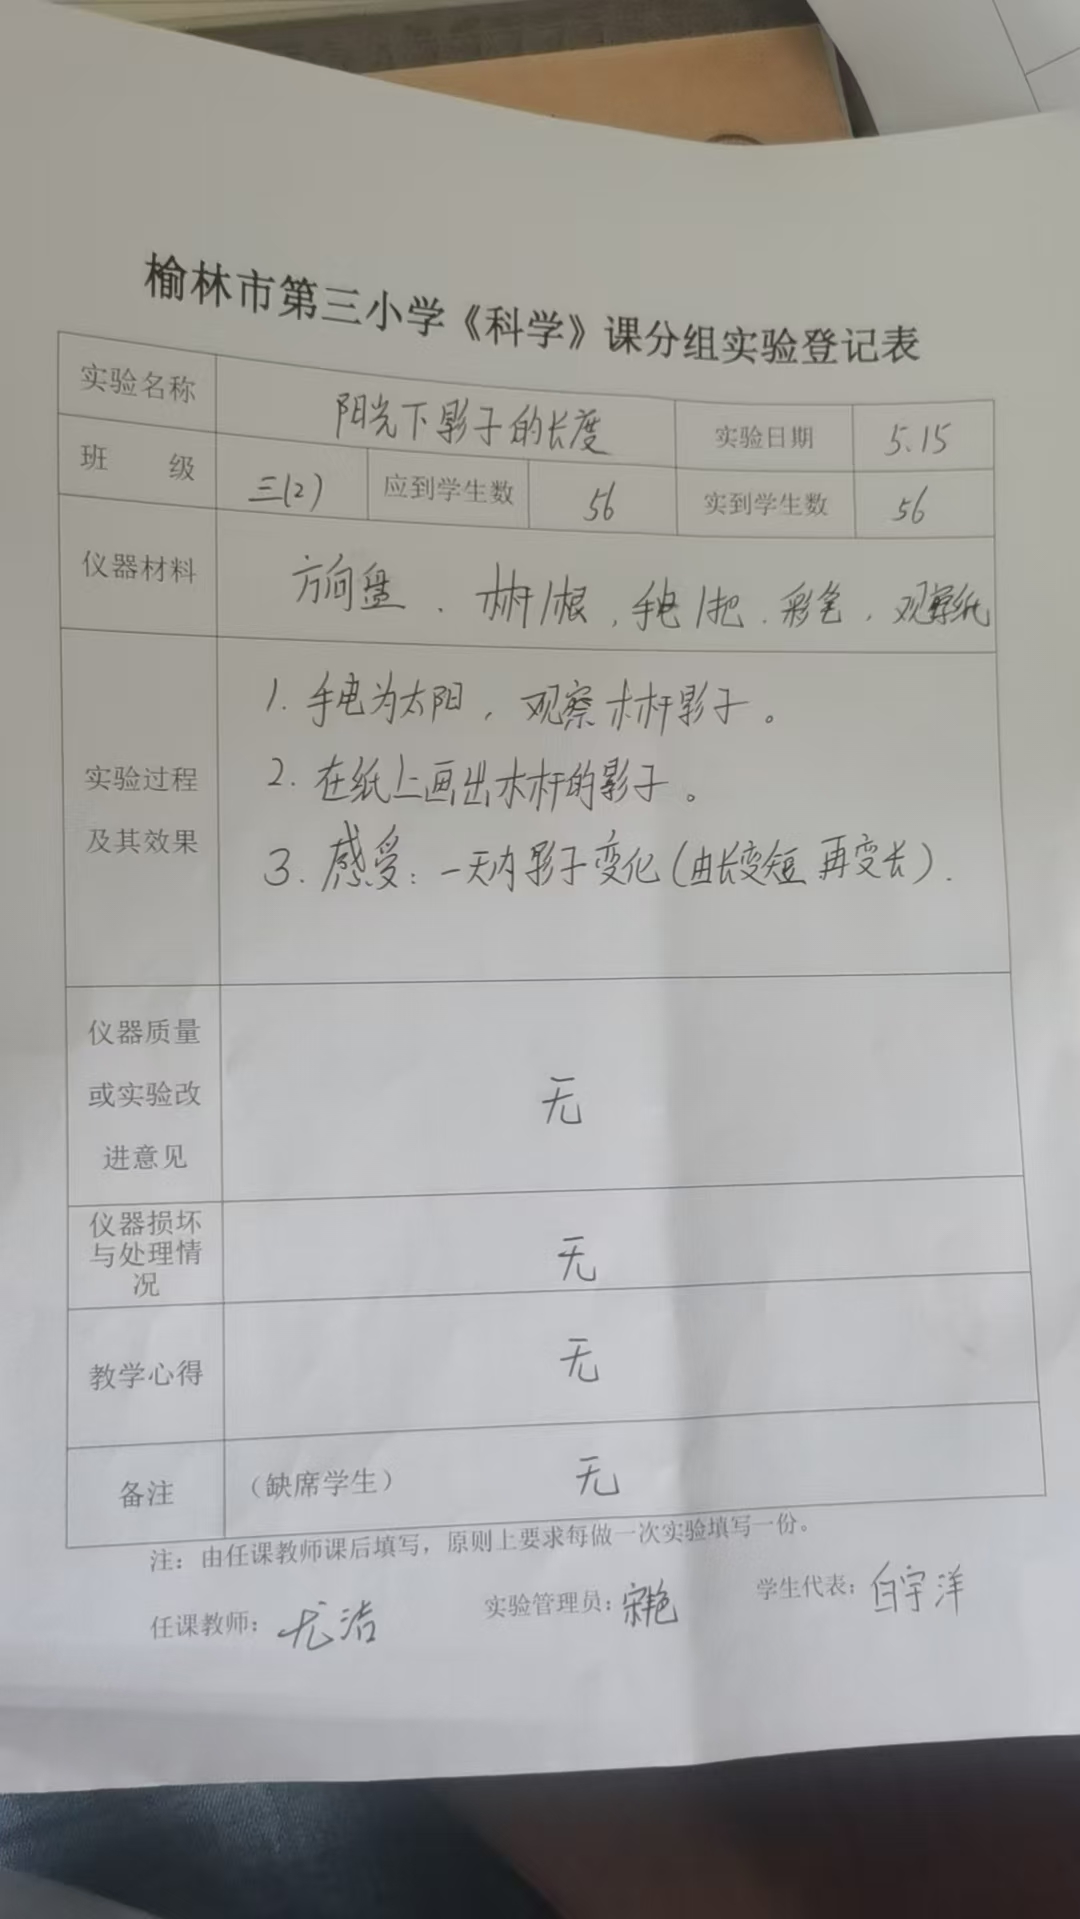 榆林市第三小学《科学》课分组实验登记表
实验名称 阳光下影子的长度 实验日期 5.15
班 级 三(2) 应到学生数 56 实到学生数 56
仪器材料 方向盘、木杆1根,手电1把、彩色,观察纸
实验过程
及其效果
1. 手电为太阳,观察木杆影子。
2. 在纸上画出木杆的影子。
3. 感受:一天内影子变化(由长变短 再变长).
仪器质量
或实验改
进意见
无
仪器损坏
与处理情
况
无
教学心得 无
备注 (缺席学生) 无
注:由任课教师课后填写,原则上要求每做一次实验填写一份。
任课教师:尤洁 实验管理员:宋艳 学生代表:白宇洋